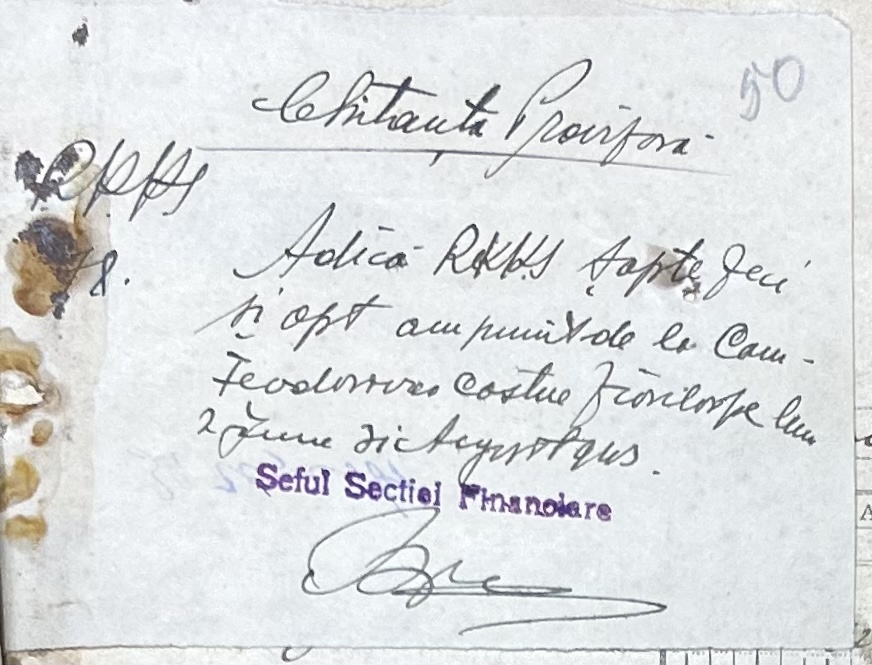 50
Chitanta Provizorа
RKKS
78.
Adică RKKS șapte zeci
și opt am primit de la Com-
costul ziarilor pe luna
Iunie și August
Șeful Sectiei Financiare